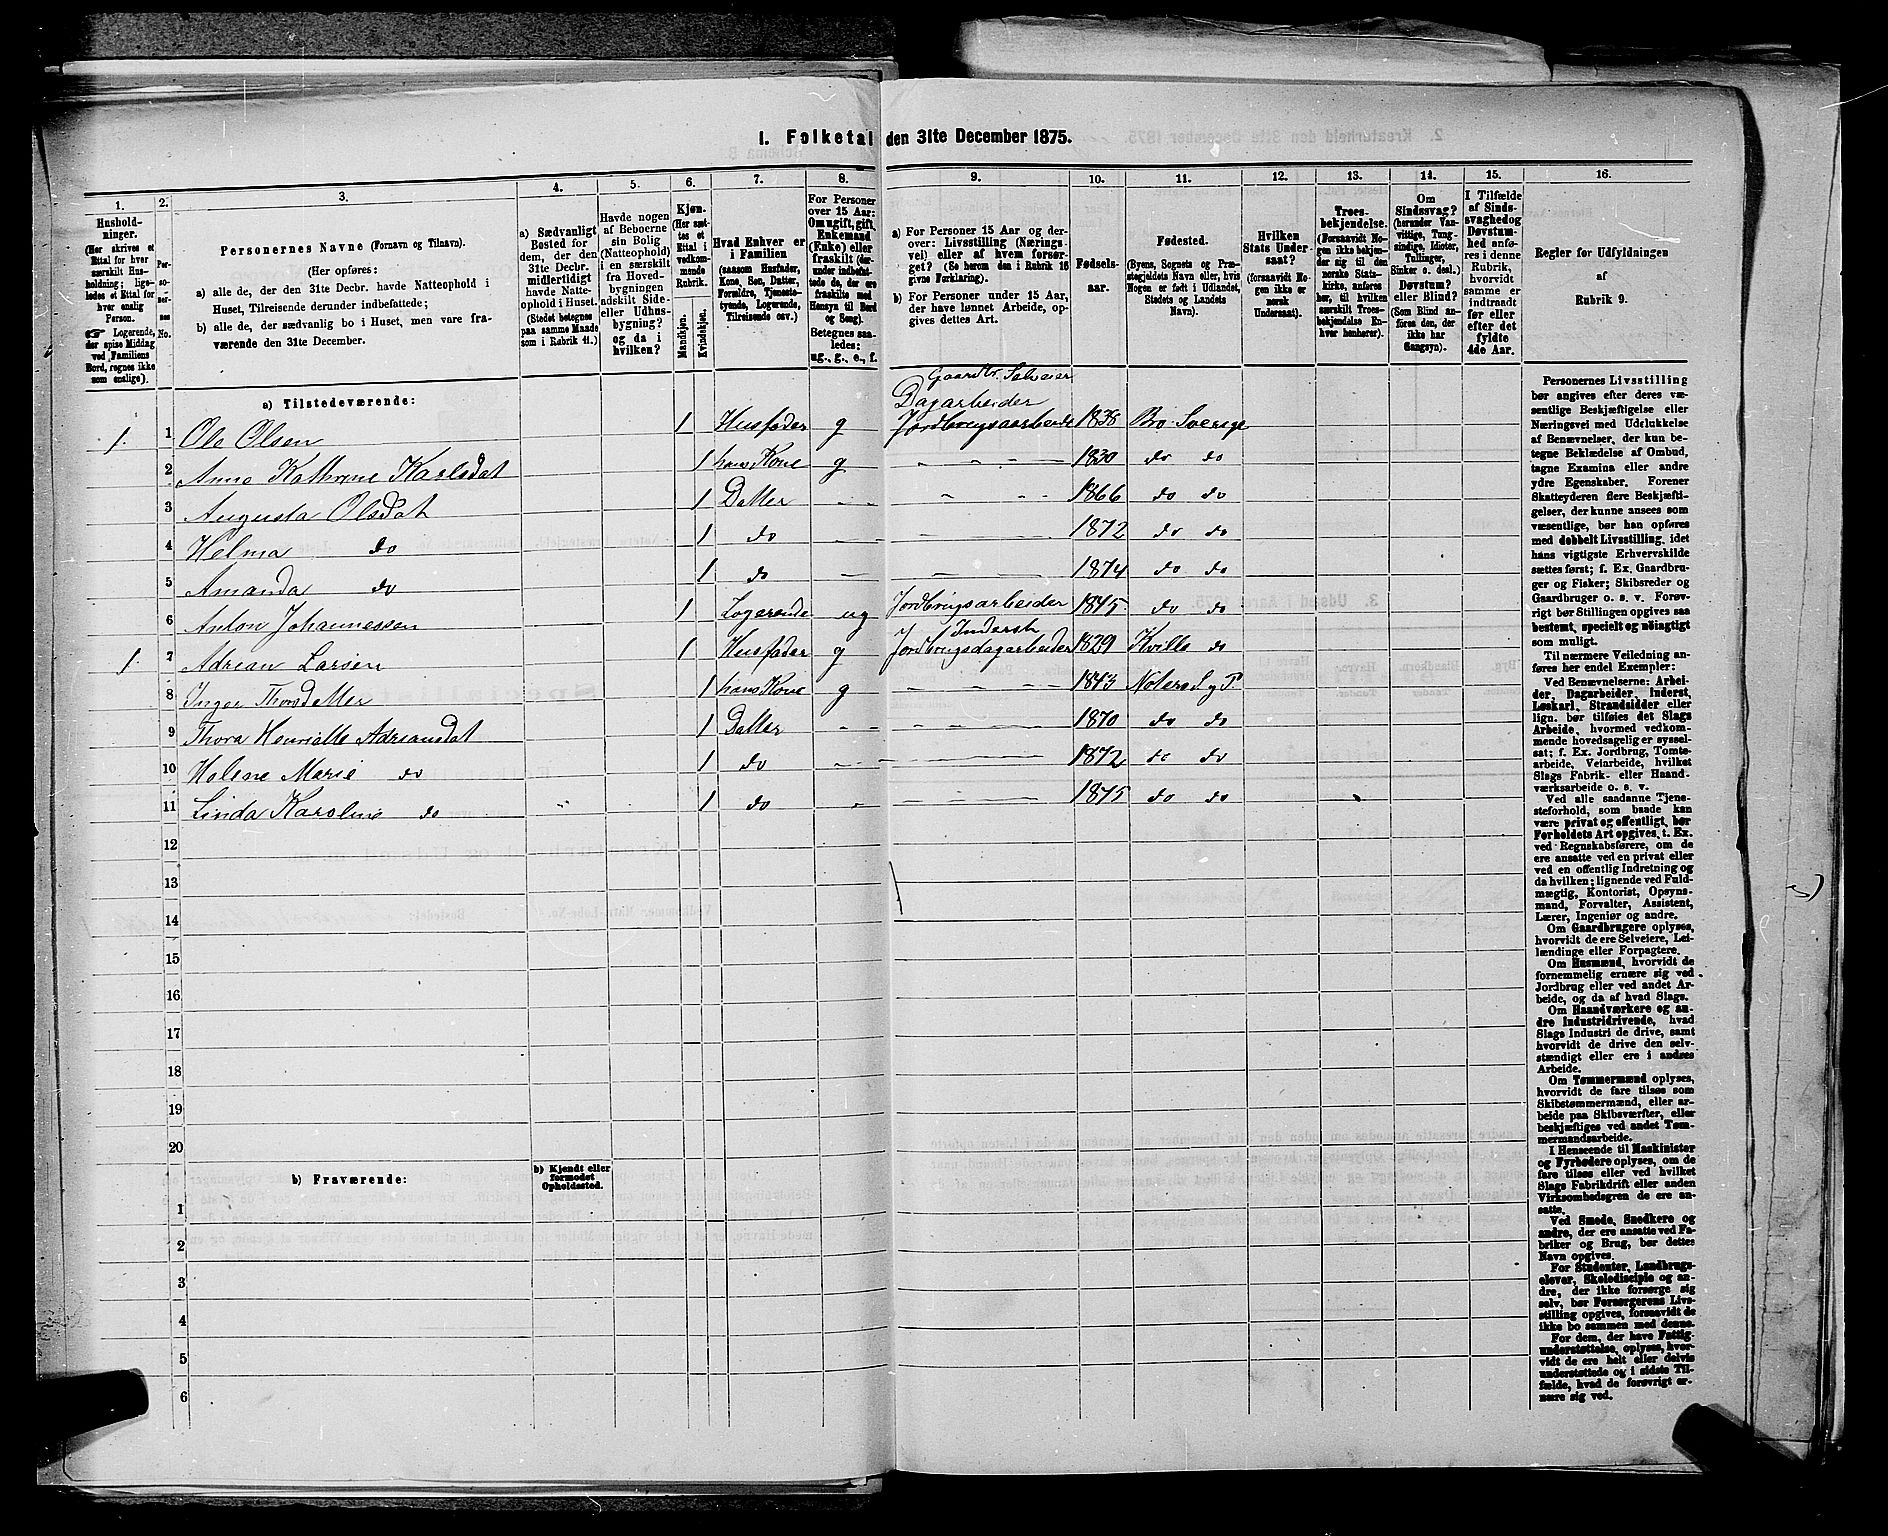 1. Folketal den 31te December 1875.
1. 2. 3. 4. 5. 6. 7. 8. 9. 10. 11. 12. 13. 14. 15. 16.
Hushold-
ninger.
(Her skrives et
Ettal for hver
særskilt Hus-
holdning; lige-
ledes et Ettal for
hver enslig
Person.
☞ Logerende,
der spise Middag
ved Familiens
Bord, regnes ikke
som enslige).
Per-
so-
ner-
nes
No.
Personernes Navne (Fornavn og Tilnavn).
(Her opføres:
a) alle de, der den 31te Decbr. havde Natteophold i
Huset, Tilreisende derunder indbefattede;
b) alle de, der sædvanlig bo i Huset, men vare fra-
værende den 31te December.
a) Sædvanligt
Bosted for
dem, der den
31te Decbr.
midlertidigt
havde Natte-
ophold i Huset.
(Stedet betegnes
paa samme Maade
som i Rubrik 11.)
Havde nogen
af Beboerne
sin Bolig
(Natteophold)
i en særskilt
fra Hoved-
bygningen
adskilt Side-
eller Udhus-
bygning?
og da i
hvilken?
Kjøn.
(Her sæt-
tes et
Ettal i
vedkom-
mende
Rubrik.
Mandkjøn.
Kvindekjøn.
Hvad Enhver er
i Familien
(saasom Husfader,
Kone, Søn, Datter,
Forældre, Tjeneste-
tyende, Logerende,
Tilreisende osv.)
For Personer
over 15 Aar:
Om ugift, gift,
Enkemand
(Enke) eller
fraskilt (der-
under indbefat-
tede de, der ere
fraskilte med
Hensyn til Bord
og Seng).
Betegnes saa-
ledes:
ug., g., e., f.
a) For Personer 15 Aar og der-
over: Livsstilling (Nærings-
vei) eller af hvem forsør-
get? (Se herom den i Rubrik 16
givne Forklaring).
b) For Personer under 15 Aar,
der have lønnet Arbeide, op-
gives dettes Art.
Fødsels-
aar.
Fødested.
(Byens, Sognets og Præ-
stegjeldets Navn eller, hvis
Nogen er født i Udlandet,
Stedets og Landets
Navn).
Hvilken
Stats Under-
saat?
(forsaavidt No-
gen ikke er
norsk
Undersaat).
Troes-
bekjendelse.
(Forsaavidt No-
gen ikke bekjen-
der sig til den
norske Stats-
kirke, anføres
her, til hvilken
særskilt Troes-
bekjendelse En-
hver henhører).
Om
Sindssvag?
(herunder Van-
vittige, Tung-
sindige, Idioter,
Tullinger,
Sinker o. desl.)
Døvstum?
eller Blind?
(Som Blind an-
føres den, der
ikke har
Gangsyn).
I Tilfælde
af Sinds-
svaghed og
Døvstum-
hed anfø-
res i denne
Rubrik,
hvorvidt
samme er
indtraadt
før eller
efter det
fyldte
4de Aar.
Regler for Udfyldningen
af
Rubrik 9.
a) Tilstedeværende:
Gaardbr. Selveier
Dagarbeider
1. 1 Ole Olsen 1 Husfader g Jordbrugsaarbeide 1838 Bro Sverige
2 Anne Kathrine Karlsdat 1 hans Kone g " — — 1830 do do
3 Augusta Olsdat 1 Datter — " — 1866 do do
4 Helma do 1 do — — 1872 do do
5 Amanda do 1 do — — 1874 do do
6 Anton Johannessen 1 Logerende ug Jordbrugsarbeider 1845 do do
Inderst
1. 7 Adrian Larsen 1 Husfader g Jordbrugsdagarbeider 1829 Kville do
8 Inger Thorsdatter 1 hans Kone g " — — 1843 Noterø S. g P.
9 Thora Henriette Adriansdat 1 Datter — — 1870 do do
10 Helene Marie do 1 do — — 1872 do do
11 Linda Karoline do " 1 do " — 1875 do do
12
13
14
15
16
17
18
19
20
b) Fraværende:
b) Kjendt eller
formodet
Opholdssted.
1
2
3
4
5
6
Personernes Livsstilling
bør angives efter deres væ-
sentlige Beskjæftigelse eller
Næringsvei med Udelukkelse
af Benævnelser, der kun be-
tegne Beklædelse af Ombud,
tagne Examina eller andre
ydre Egenskaber. Forener
Skatteyderen flere Beskjæfti-
gelser, der kunne ansees som
væsentlige, bør han opføres
med dobbelt Livsstilling, idet
hans vigtigste Erhvervskilde
sættes først; f. Ex. Gaardbru-
ger og Fisker; Skibsreder og
Gaardbruger o. s. v. Forøv-
rigt bør Stillingen opgives saa
bestemt, specielt og nøiagtigt
som muligt.
Til nærmere Veiledning an-
føres her endel Exempler:
Ved Benævnelserne: Arbei-
der, Dagarbeider, Inderst,
Løskarl, Strandsidder eller
lign. bør tilføies det Slags
Arbeide, hvormed vedkom-
mende hovedsagelig er syssel-
sat; f. Ex. Jordbrug, Tomte-
arbeide, Veiarbeide, hvilket
Slags Fabrik- eller Haand-
værksarbeide o. s. v.
Ved alle saadanne Tjene-
steforhold, som baade kan
være privat og offentligt, bør
Forholdets Art opgives, t. Ex.
ved Regnskabsførere, om de
ere ansatte ved en privat eller
ved en offentlig Indretning og
da hvilken; lignende ved Fuld-
mægtig, Kontorist, Opsyns-
mand, Forvalter, Assistent,
Lærer, Ingeniør og andre.
Om Gaardbrugere oplyses,
hvorvidt de ere Selveiere, Lei-
lændinge eller Forpagtere.
Om Husmænd, hvorvidt de
fornemmelig ernære sig ved
Jordbrug eller ved andet Ar-
beide, og da af hvad Slags.
Om Haandværkere og an-
dre Industridrivende, hvad
Slags Industri de drive, samt
hvorvidt de drive den selv-
stændigt eller ere i andres
Arbeide.
Om Tømmermænd oplyses,
hvorvidt de fare tilsøs som
Skibstømmermænd, eller ar-
beide paa Skibsværfter, eller
beskjæftiges ved andet Tøm-
mermandsarbeide.
I Henseende til Maskinister
og Fyrbødere oplyses, om de
fare tilsøs eller ved hvilket
Slags Fabrikdrift eller anden
Virksomhedsgren de ere an-
satte.
Ved Smede, Snedkere og
andre, der ere ansatte ved Fa-
briker og Brug, bør dettes
Navn opgives.
For Studenter, Landbrugs-
elever, Skoledisciple og an-
dre, der ikke forsørge sig
selv, bør Forsørgerens Livs-
stilling opgives, forsaavidt de
ikke bo sammen med denne.
For dem, der have Fattig-
understøttelse, oplyses, hvor-
vidt de ere helt eller delvis
understøttede og i sidste Til-
fælde, hvad de forøvrigt er-
nære sig ved.